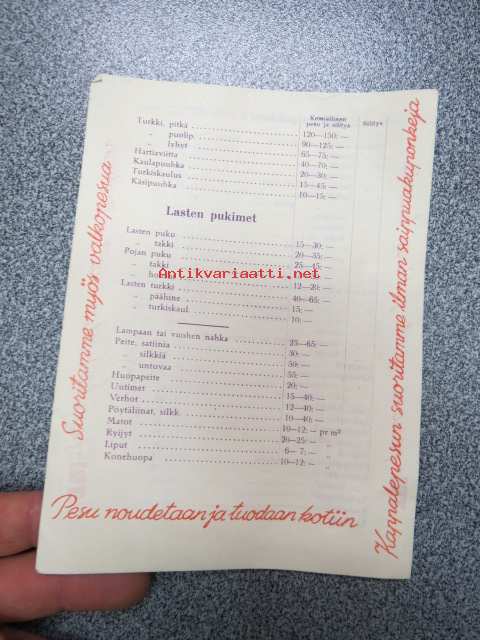 Kemiallinen
pesu ja silitys
Silitys
Turkki, pitkä 120—150: —
„ puolip. 90—125: —
„ lyhyt 65—75: —
Hartiaviitta 40—70: —
Kaulapuuhka 20—30: —
Turkiskaulus 15—45: —
Käsipuuhka 10—15: —
Lasten pukimet
Lasten puku 15—30: —
„ takki 20—35: —
Pojan puku 25—45: —
„ takki
„ 12—20: —
Lasten turkki 40—65: —
„ päähine 15: —
„ turkiskaul. 10: —
Lampaan tai vuohen nahka 25—65: —
Peite, satiinia 30: —
„ silkkiä 50: —
„ untuvaa 55: —
Huopapeite 20: —
Uutimet 15—40: —
Verhot 12—40: —
Pöytäliinat, silkk. 10—40: —
Matot 10—12: — pr m²
Ryijyt 20—25: — „
Liput 6— 7: — „
Konehuopa 10—12: — „
Suoritamme myös valkopesua
Pesu noudetaan ja tuodaan kotiin
Kappalepesun suoritamme ilman saippuakuponkeja
Antikvariaatti.net